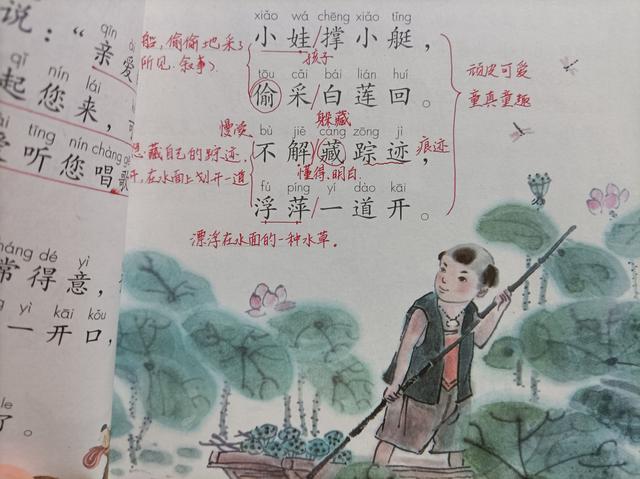 说：“亲爱
qīn ài
起您来，
qǐ nín lái
听您唱歌
tīng nín chàng gē
常得意，
cháng dé yì
一开口，
yì kāi kǒu
了。
le
船，偷偷地采了
所见.叙事)
xiǎo wá chēng xiǎo tǐng
小娃/撑小艇，
孩子
tōu cǎi bái lián huí
偷采/白莲回。
慢没
躲藏
bù jiě cáng zōng jì
藏自己的踪迹.
不解/藏踪迹，
痕迹
开,在水面上划开一道
懂得.明白.
fú píng yí dào kāi
浮萍/一道开。
漂浮在水面的一种水草。
顽皮可爱
童真童趣